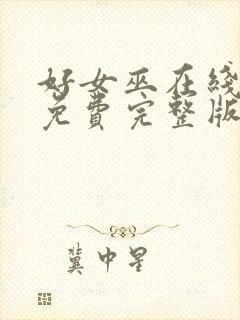 好女巫在线
免费完整版
冀中星